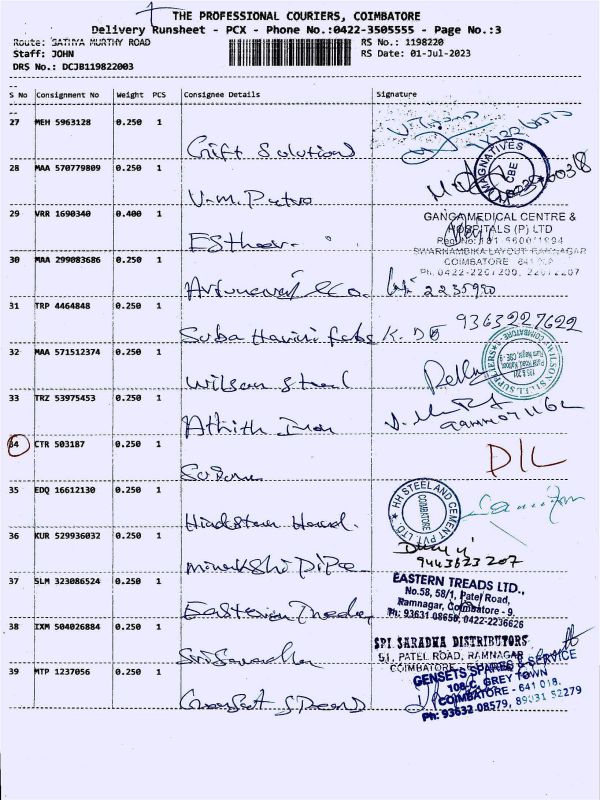 THE PROFESSIONAL COURIERS, COIMBATORE
Delivery Runsheet - PCX - Phone No.:0422-3505555 - Page No.:3
Route: SATHYA MURTHY ROAD RS No.: 1198220
Staff: JOHN RS Date: 01-Jul-2023
DRS No.: DCJB119822003
S No Consignment No Weight PCS Consignee Details Signature
27 MEH 5963128 0.250 1
Gift Solution
28 MAA 570779809 0.250 1
MAGNATIVES CBE
V.M. Putra
29 VRR 1690340 0.400 1
GANGA MEDICAL CENTRE &
HOSPITALS (P) LTD
Esther
SWARNAMBIKA LAYOUT RAMNAGAR
30 MAA 299083686 0.250 1
COIMBATORE
& Co. 2235990
31 TRP 4464848 0.250 1
9363227622
Suba Harini
32 MAA 571512374 0.250 1
WILSON STEEL SUPPLIERS COIMBATORE
Wilson Steel
33 TRZ 53975453 0.250 1
Athith Iron
34 CTR 503187 0.250 1
D/L
35 EDQ 16612130 0.250 1
HH STEEL AND CEMENT PVT. LTD. COIMBATORE
Hindstan
36 KUR 529936032 0.250 1
9443623207
Minakshi Pipe
37 SLM 323086524 0.250 1
EASTERN TREADS LTD.,
No.58, 58/1, Patel Road,
Ramnagar, Coimbatore - 9.
Ph: 93631 08650, 0422-2236626
Eastern Treads
38 IXM 504026884 0.250 1
SRI SARADHA DISTRIBUTORS
51, PATEL ROAD, RAMNAGAR
COIMBATORE
Sri Saradha
39 MTP 1237056 0.250 1
GENSETS SPARES & SERVICE
108-C, GREY TOWN
COIMBATORE - 641 018.
Ph: 93632 08579, 89031 52279